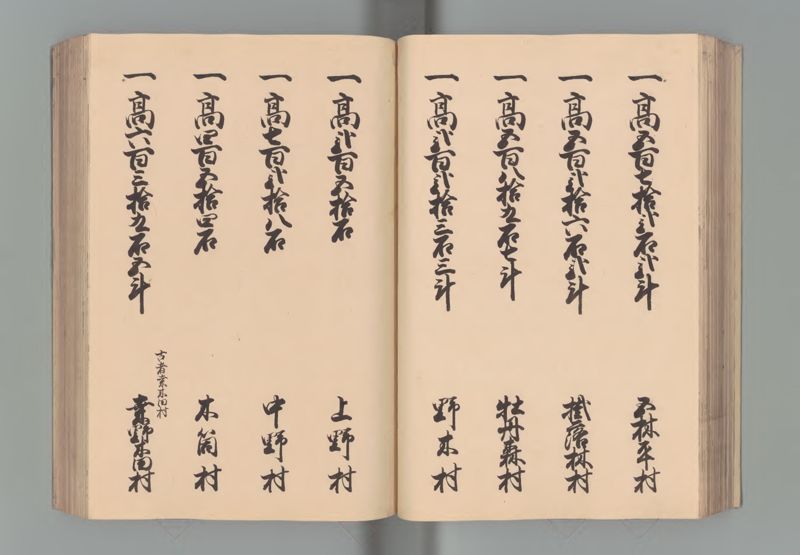 一高五百七拾弐石弐斗 五林平村
一高五百弐拾六石弐斗 掛落林村
一高五百八拾五石七斗 牡丹森村
一高弐百弐拾三石三斗 野木村
一高弐百五拾石 上野村
一高七百弐拾八石 中野村
一高四百五拾四石 木筒村
古者業木田村
一高六百三拾九石五斗 野木田村